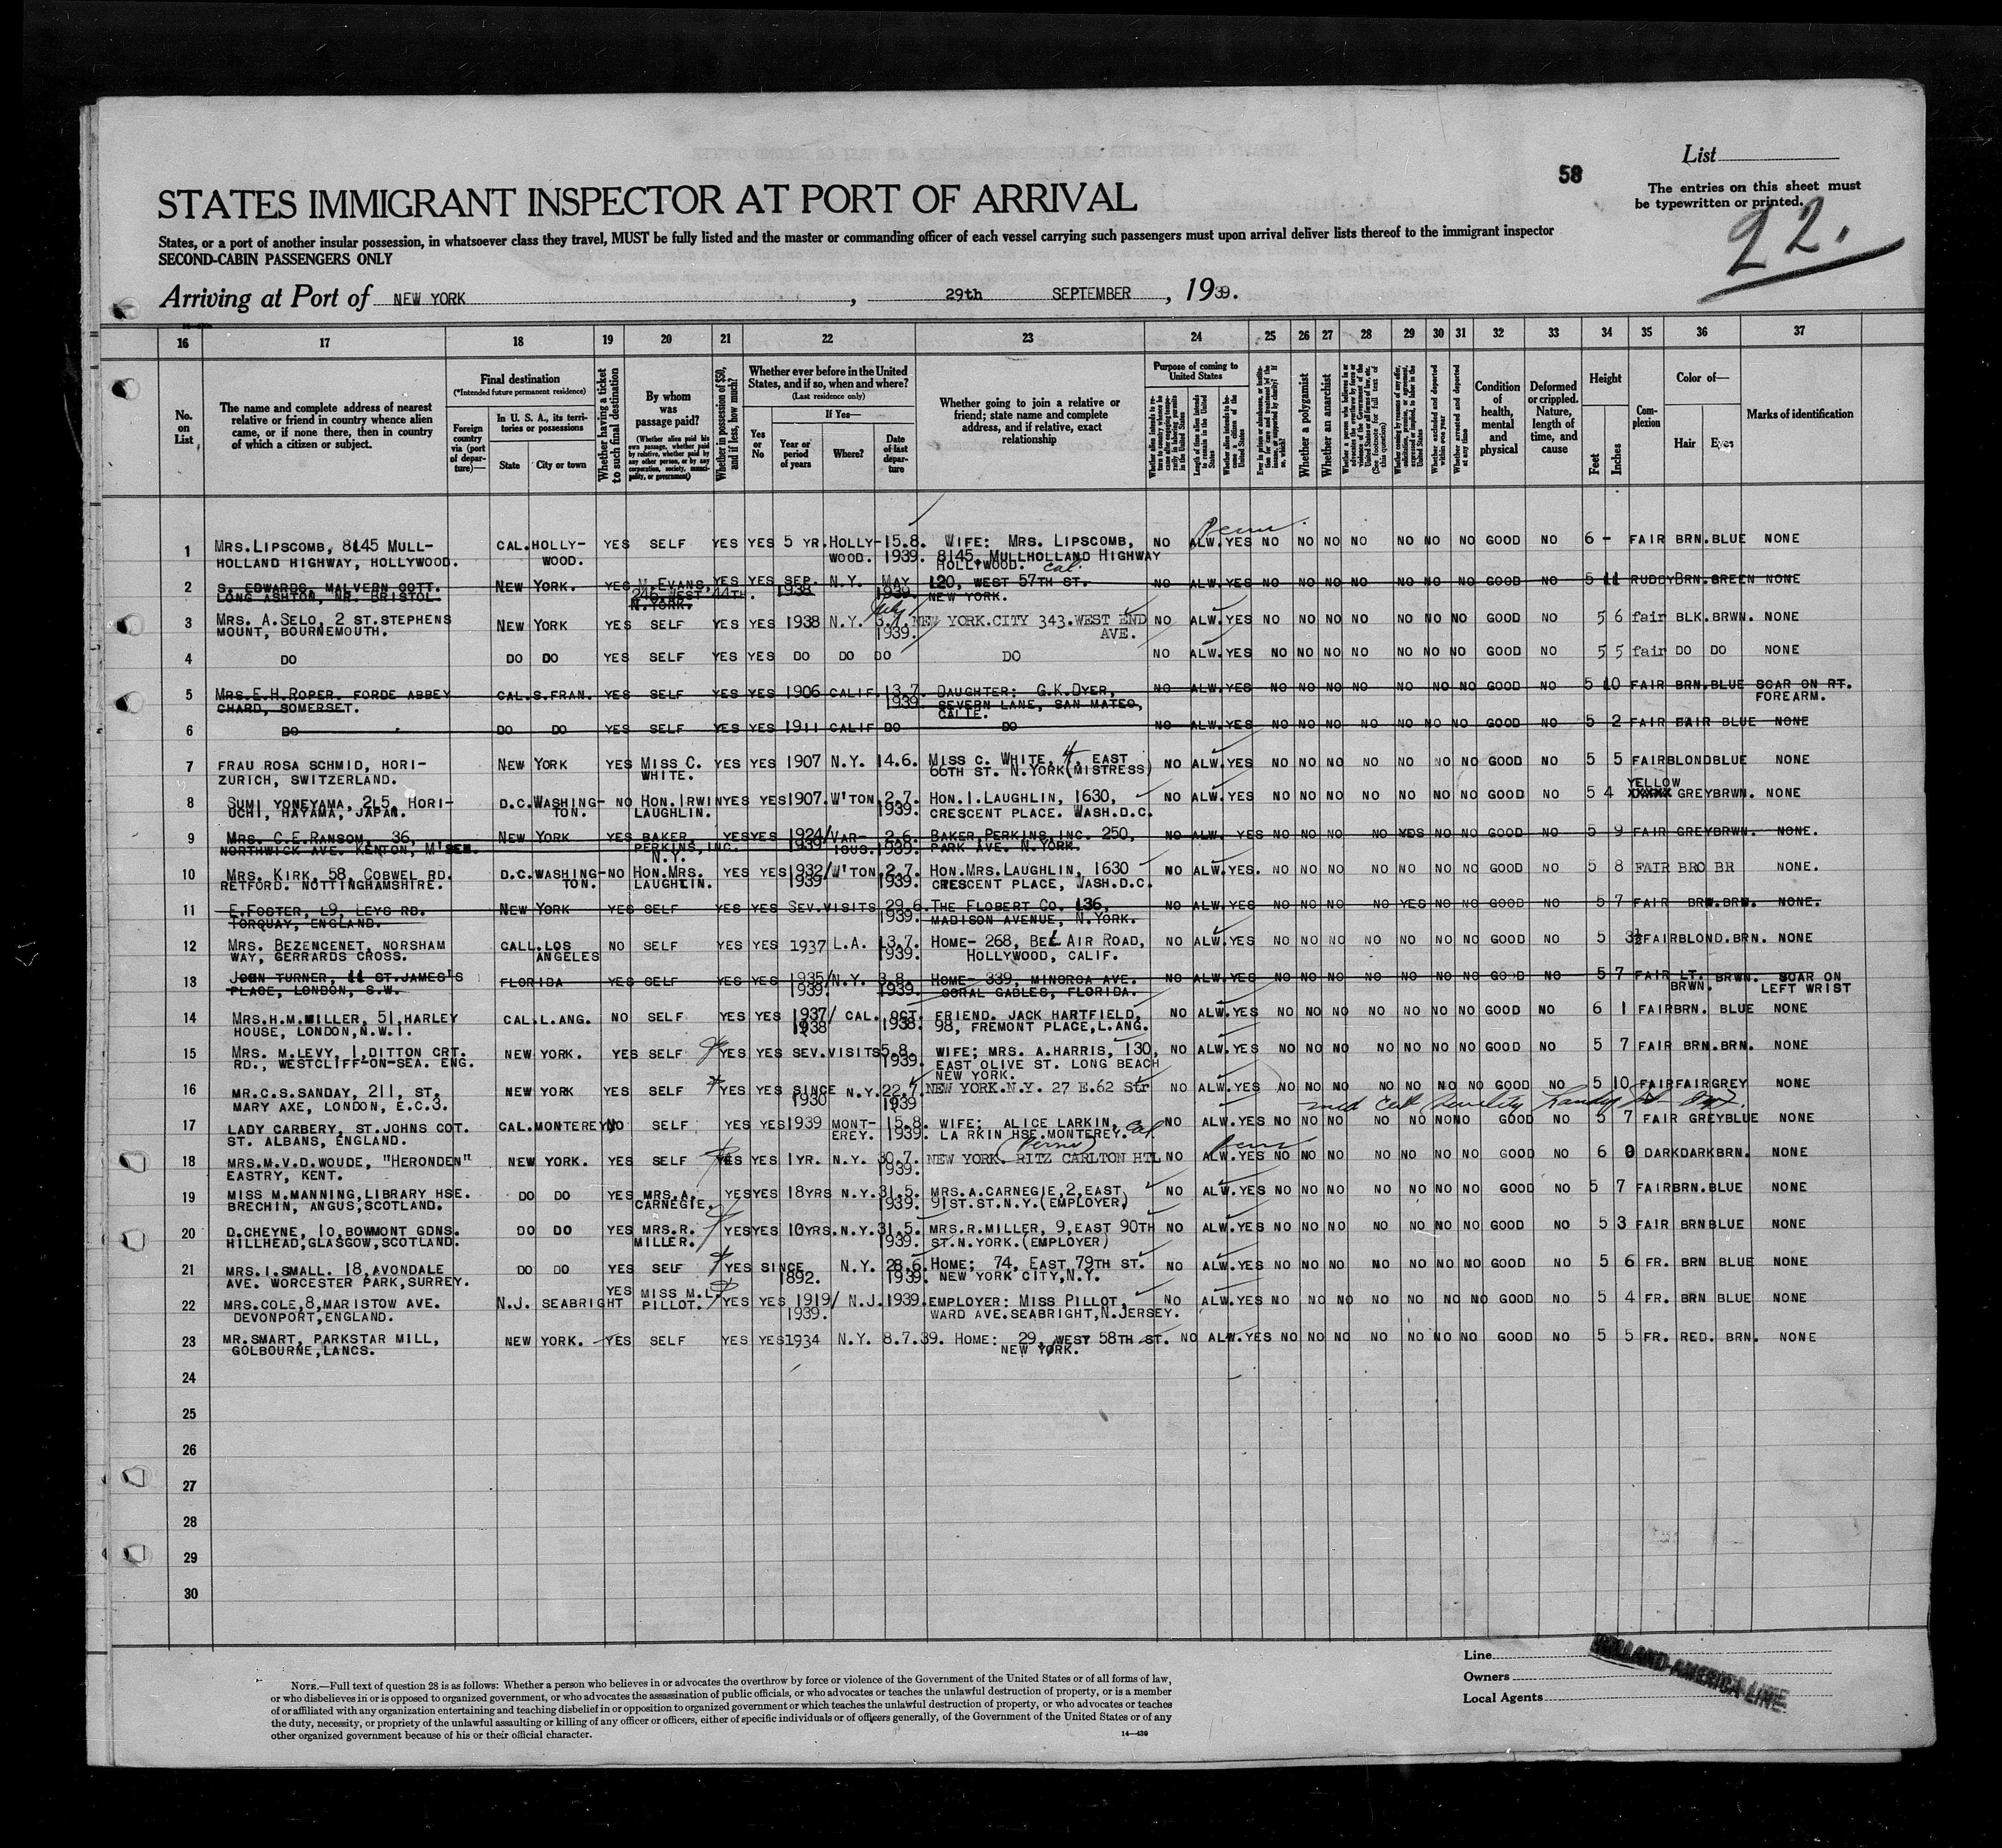 58
List
The entries on this sheet must
be typewritten or printed.
22.
STATES IMMIGRANT INSPECTOR AT PORT OF ARRIVAL
States, or a port of another insular possession, in whatsoever class they travel, MUST be fully listed and the master or commanding officer of each vessel carrying such passengers must upon arrival deliver lists thereof to the immigrant inspector
SECOND-CABIN PASSENGERS ONLY
Arriving at Port of NEW YORK, 29th SEPTEMBER, 1939.
16 17 18 19 20 21 22 23 24 25 26 27 28 29 30 31 32 33 34 35 36 37
No. on List
The name and complete address of nearest relative or friend in country whence alien came, or if none there, then in country of which a citizen or subject.
Final destination
(*Intended future permanent residence)
Foreign country via (port of departure)—
In U. S. A., its territories or possessions
State
City or town
Whether having a ticket to such final destination
By whom was passage paid?
(Whether alien paid his own passage, whether paid by relative, whether paid by any other person, or by any corporation, society, municipality, or government)
Whether in possession of $50, and if less, how much?
Whether ever before in the United States, and if so, when and where?
(Last residence only)
Yes or No
If Yes—
Year or period of years
Where?
Date of last departure
Whether going to join a relative or friend; state name and complete address, and if relative, exact relationship
Purpose of coming to United States
Whether a polygamist
Whether an anarchist
Condition of health, mental and physical
Deformed or crippled. Nature, length of time, and cause
Height
Feet
Inches
Complexion
Color of—
Hair
Eyes
Marks of identification
1 MRS. LIPSCOMB, 8145 MULL- CAL. HOLLY- YES SELF YES YES 5 YR. HOLLY- 15.8. WIFE: MRS. LIPSCOMB, NO ALW. YES NO NO NO NO NO NO NO GOOD NO 6 - FAIR BRN. BLUE NONE
HOLLAND HIGHWAY, HOLLYWOOD. WOOD. WOOD. 1939. 8145, MULLHOLLAND HIGHWAY
HOLLYWOOD. Cal.
2 S. EDWARDS, MALVERN COTT. NEW YORK. YES M. EVANS, YES YES SEP. N.Y. MAY 120, WEST 57TH ST. NO ALW. YES NO NO NO NO NO NO NO GOOD NO 5 11 RUDDY BRN. GREEN NONE
LONG ASHTON, NR. BRISTOL. 246 WEST 44TH. 1938 1939. NEW YORK.
N. YORK.
3 MRS. A. SELO, 2 ST. STEPHENS NEW YORK YES SELF YES YES 1938 N.Y. NEW YORK. CITY 343. WEST END NO ALW. YES NO NO NO NO NO NO NO GOOD NO 5 6 fair BLK. BRWN. NONE
MOUNT, BOURNEMOUTH. 1939. AVE.
4 DO DO DO YES SELF YES YES DO DO DO DO NO ALW. YES NO NO NO NO NO NO NO GOOD NO 5 5 fair DO DO NONE
5 MRS. E.H. ROPER. FORDE ABBEY CAL. S. FRAN. YES SELF YES YES 1906 CALIF. 13.7. DAUGHTER: G.K. DYER, NO ALW. YES NO NO NO NO NO NO NO GOOD NO 5 10 FAIR BRN. BLUE SCAR ON RT.
CHARD, SOMERSET. 1939. SEVERN LANE, SAN MATEO, FOREARM.
CALIF.
6 DO DO DO YES SELF YES YES 1911 CALIF DO DO NO ALW. YES NO NO NO NO NO NO NO GOOD NO 5 2 FAIR FAIR BLUE NONE
7 FRAU ROSA SCHMID, HORI- NEW YORK YES MISS C. YES YES 1907 N.Y. 14.6. MISS C. WHITE, 4, EAST NO ALW. YES NO NO NO NO NO NO NO GOOD NO 5 5 FAIR BLOND BLUE NONE
ZURICH, SWITZERLAND. WHITE. 66TH ST. N. YORK (MISTRESS)
8 SUMI YONEYAMA, 215, HORI- D.C. WASHING- NO HON. IRWIN YES YES 1907. W'TON 2.7. HON. I. LAUGHLIN, 1630, NO ALW. YES NO NO NO NO NO NO NO GOOD NO 5 4 YELLOW GREY BRWN. NONE
UCHI, HAYAMA, JAPAN. TON. LAUGHLIN. 1939. CRESCENT PLACE. WASH. D.C.
9 MRS. C.E. RANSOM, 36, NEW YORK YES BAKER YES YES 1924/ VAR- 2.6. BAKER PERKINS, INC. 250, NO ALW. YES NO NO NO NO YES NO NO GOOD NO 5 9 FAIR GREY BRWN. NONE.
NORTHWICK AVE. KENTON, M'SEX. PERKINS, INC. 1939 IOUS. 1939. PARK AVE. N. YORK.
N.Y.
10 MRS. KIRK, 58, COBWEL RD. D.C. WASHING- NO HON. MRS. YES YES 1932/ W'TON 2.7. HON. MRS. LAUGHLIN, 1630 NO ALW. YES. NO NO NO NO NO NO NO GOOD NO 5 8 FAIR BRO BR NONE.
RETFORD. NOTTINGHAMSHIRE. TON. LAUGHLIN. 1939 1939. CRESCENT PLACE, WASH. D.C.
11 E. FOSTER, 19, LEYS RD. NEW YORK YES SELF YES YES SEV. VISITS 29.6. THE FLOBERT CO. 136, NO ALW. YES NO NO NO NO YES NO NO GOOD NO 5 7 FAIR BRW. BRW. NONE.
TORQUAY, ENGLAND. 1939. MADISON AVENUE, N. YORK.
12 MRS. BEZENCENET, NORSHAM CALL. LOS NO SELF YES YES 1937 L.A. 13.7. HOME- 268, BEL AIR ROAD, NO ALW. YES NO NO NO NO NO NO NO GOOD NO 5 3½ FAIR BLOND. BRN. NONE
WAY, GERRARDS CROSS. ANGELES 1939. HOLLYWOOD, CALIF.
13 JOAN TURNER, 11 ST. JAMES'S FLORIDA YES SELF YES YES 1935/ N.Y. 3.8. HOME- 339, MINORCA AVE. NO ALW. YES NO NO NO NO NO NO NO GOOD NO 5 7 FAIR LT. BRWN. SCAR ON
PLACE, LONDON, S.W. 1939. 1939. CORAL GABLES, FLORIDA. BRWN. LEFT WRIST
14 MRS. H.M. MILLER, 51, HARLEY CAL. L. ANG. NO SELF YES YES 1937/ CAL. OCT. FRIEND. JACK HARTFIELD, NO ALW. YES NO NO NO NO NO NO NO GOOD NO 6 1 FAIR BRN. BLUE NONE
HOUSE, LONDON, N.W.1. 1938 1938. 98, FREMONT PLACE, L. ANG.
15 MRS. M. LEVY, 1, DITTON CRT. NEW YORK. YES SELF YES YES SEV. VISITS 5.8. WIFE; MRS. A. HARRIS, 130, NO ALW. YES NO NO NO NO NO NO NO GOOD NO 5 7 FAIR BRN. BRN. NONE
RD., WESTCLIFF-ON-SEA. ENG. 1939. EAST OLIVE ST. LONG BEACH
NEW YORK.
16 MR. C.S. SANDAY, 211, ST. NEW YORK YES SELF YES YES SINCE N.Y. 22.7. NEW YORK. N.Y. 27 E. 62 Str NO ALW. YES NO NO NO NO NO NO NO GOOD NO 5 10 FAIR FAIR GREY NONE
MARY AXE, LONDON, E.C.3. 1930 1939
med Cert Senility
17 LADY CARBERY, ST. JOHNS COT. CAL. MONTEREY NO SELF YES YES 1939 MONT- 15.8. WIFE; ALICE LARKIN, Cal NO ALW. YES NO NO NO NO NO NO NO GOOD NO 5 7 FAIR GREY BLUE NONE
ST. ALBANS, ENGLAND. EREY. 1939. LARKIN HSE. MONTEREY.
18 MRS. M.V.D. WOUDE, "HERONDEN" NEW YORK. YES SELF YES YES 1YR. N.Y. 30.7. NEW YORK. RITZ CARLTON HTL NO ALW. YES NO NO NO NO NO NO NO GOOD NO 6 0 DARK DARK BRN. NONE
EASTRY, KENT. 1939.
19 MISS M. MANNING, LIBRARY HSE. DO DO YES MRS. A. YES YES 18YRS N.Y. 31.5. MRS. A. CARNEGIE, 2, EAST NO ALW. YES NO NO NO NO NO NO NO GOOD NO 5 7 FAIR BRN. BLUE NONE
BRECHIN, ANGUS, SCOTLAND. CARNEGIE. 1939. 91ST. ST. N.Y. (EMPLOYER)
20 D. CHEYNE, 10, BOWMONT GDNS. DO DO YES MRS. R. YES YES 10YRS. N.Y. 31.5. MRS. R. MILLER, 9, EAST 90TH NO ALW. YES NO NO NO NO NO NO NO GOOD NO 5 3 FAIR BRN BLUE NONE
HILLHEAD, GLASGOW, SCOTLAND. MILLER. 1939. ST. N. YORK. (EMPLOYER)
21 MRS. I. SMALL. 18, AVONDALE DO DO YES SELF YES SINCE N.Y. 28.6. HOME; 74, EAST 79TH ST. NO ALW. YES NO NO NO NO NO NO NO GOOD NO 5 6 FR. BRN BLUE NONE
AVE. WORCESTER PARK, SURREY. 1892. 1939. NEW YORK CITY, N.Y.
22 MRS. COLE, 8, MARISTOW AVE. N.J. SEABRIGHT YES MISS M.L. YES YES 1919/ N.J. 1939. EMPLOYER: MISS PILLOT, NO ALW. YES NO NO NO NO NO NO NO GOOD NO 5 4 FR. BRN BLUE NONE
DEVONPORT, ENGLAND. PILLOT. 1939. WARD AVE. SEABRIGHT, N. JERSEY.
23 MR. SMART, PARKSTAR MILL, NEW YORK. YES SELF YES YES 1934 N.Y. 8.7.39. HOME: 29, WEST 58TH ST. NO ALW. YES NO NO NO NO NO NO NO GOOD NO 5 5 FR. RED. BRN. NONE
GOLBOURNE, LANCS. NEW YORK.
24
25
26
27
28
29
30
NOTE.—Full text of question 28 is as follows: Whether a person who believes in or advocates the overthrow by force or violence of the Government of the United States or of all forms of law,
or who disbelieves in or is opposed to organized government, or who advocates the assassination of public officials, or who advocates or teaches the unlawful destruction of property, or is a member
of or affiliated with any organization entertaining and teaching disbelief in or opposition to organized government or which teaches the unlawful destruction of property, or who advocates or teaches
the duty, necessity, or propriety of the unlawful assaulting or killing of any officer or officers, either of specific individuals or of officers generally, of the Government of the United States or of any
other organized government because of his or their official character.
14—430
Line
Owners
Local Agents
HOLLAND-AMERICA LINE